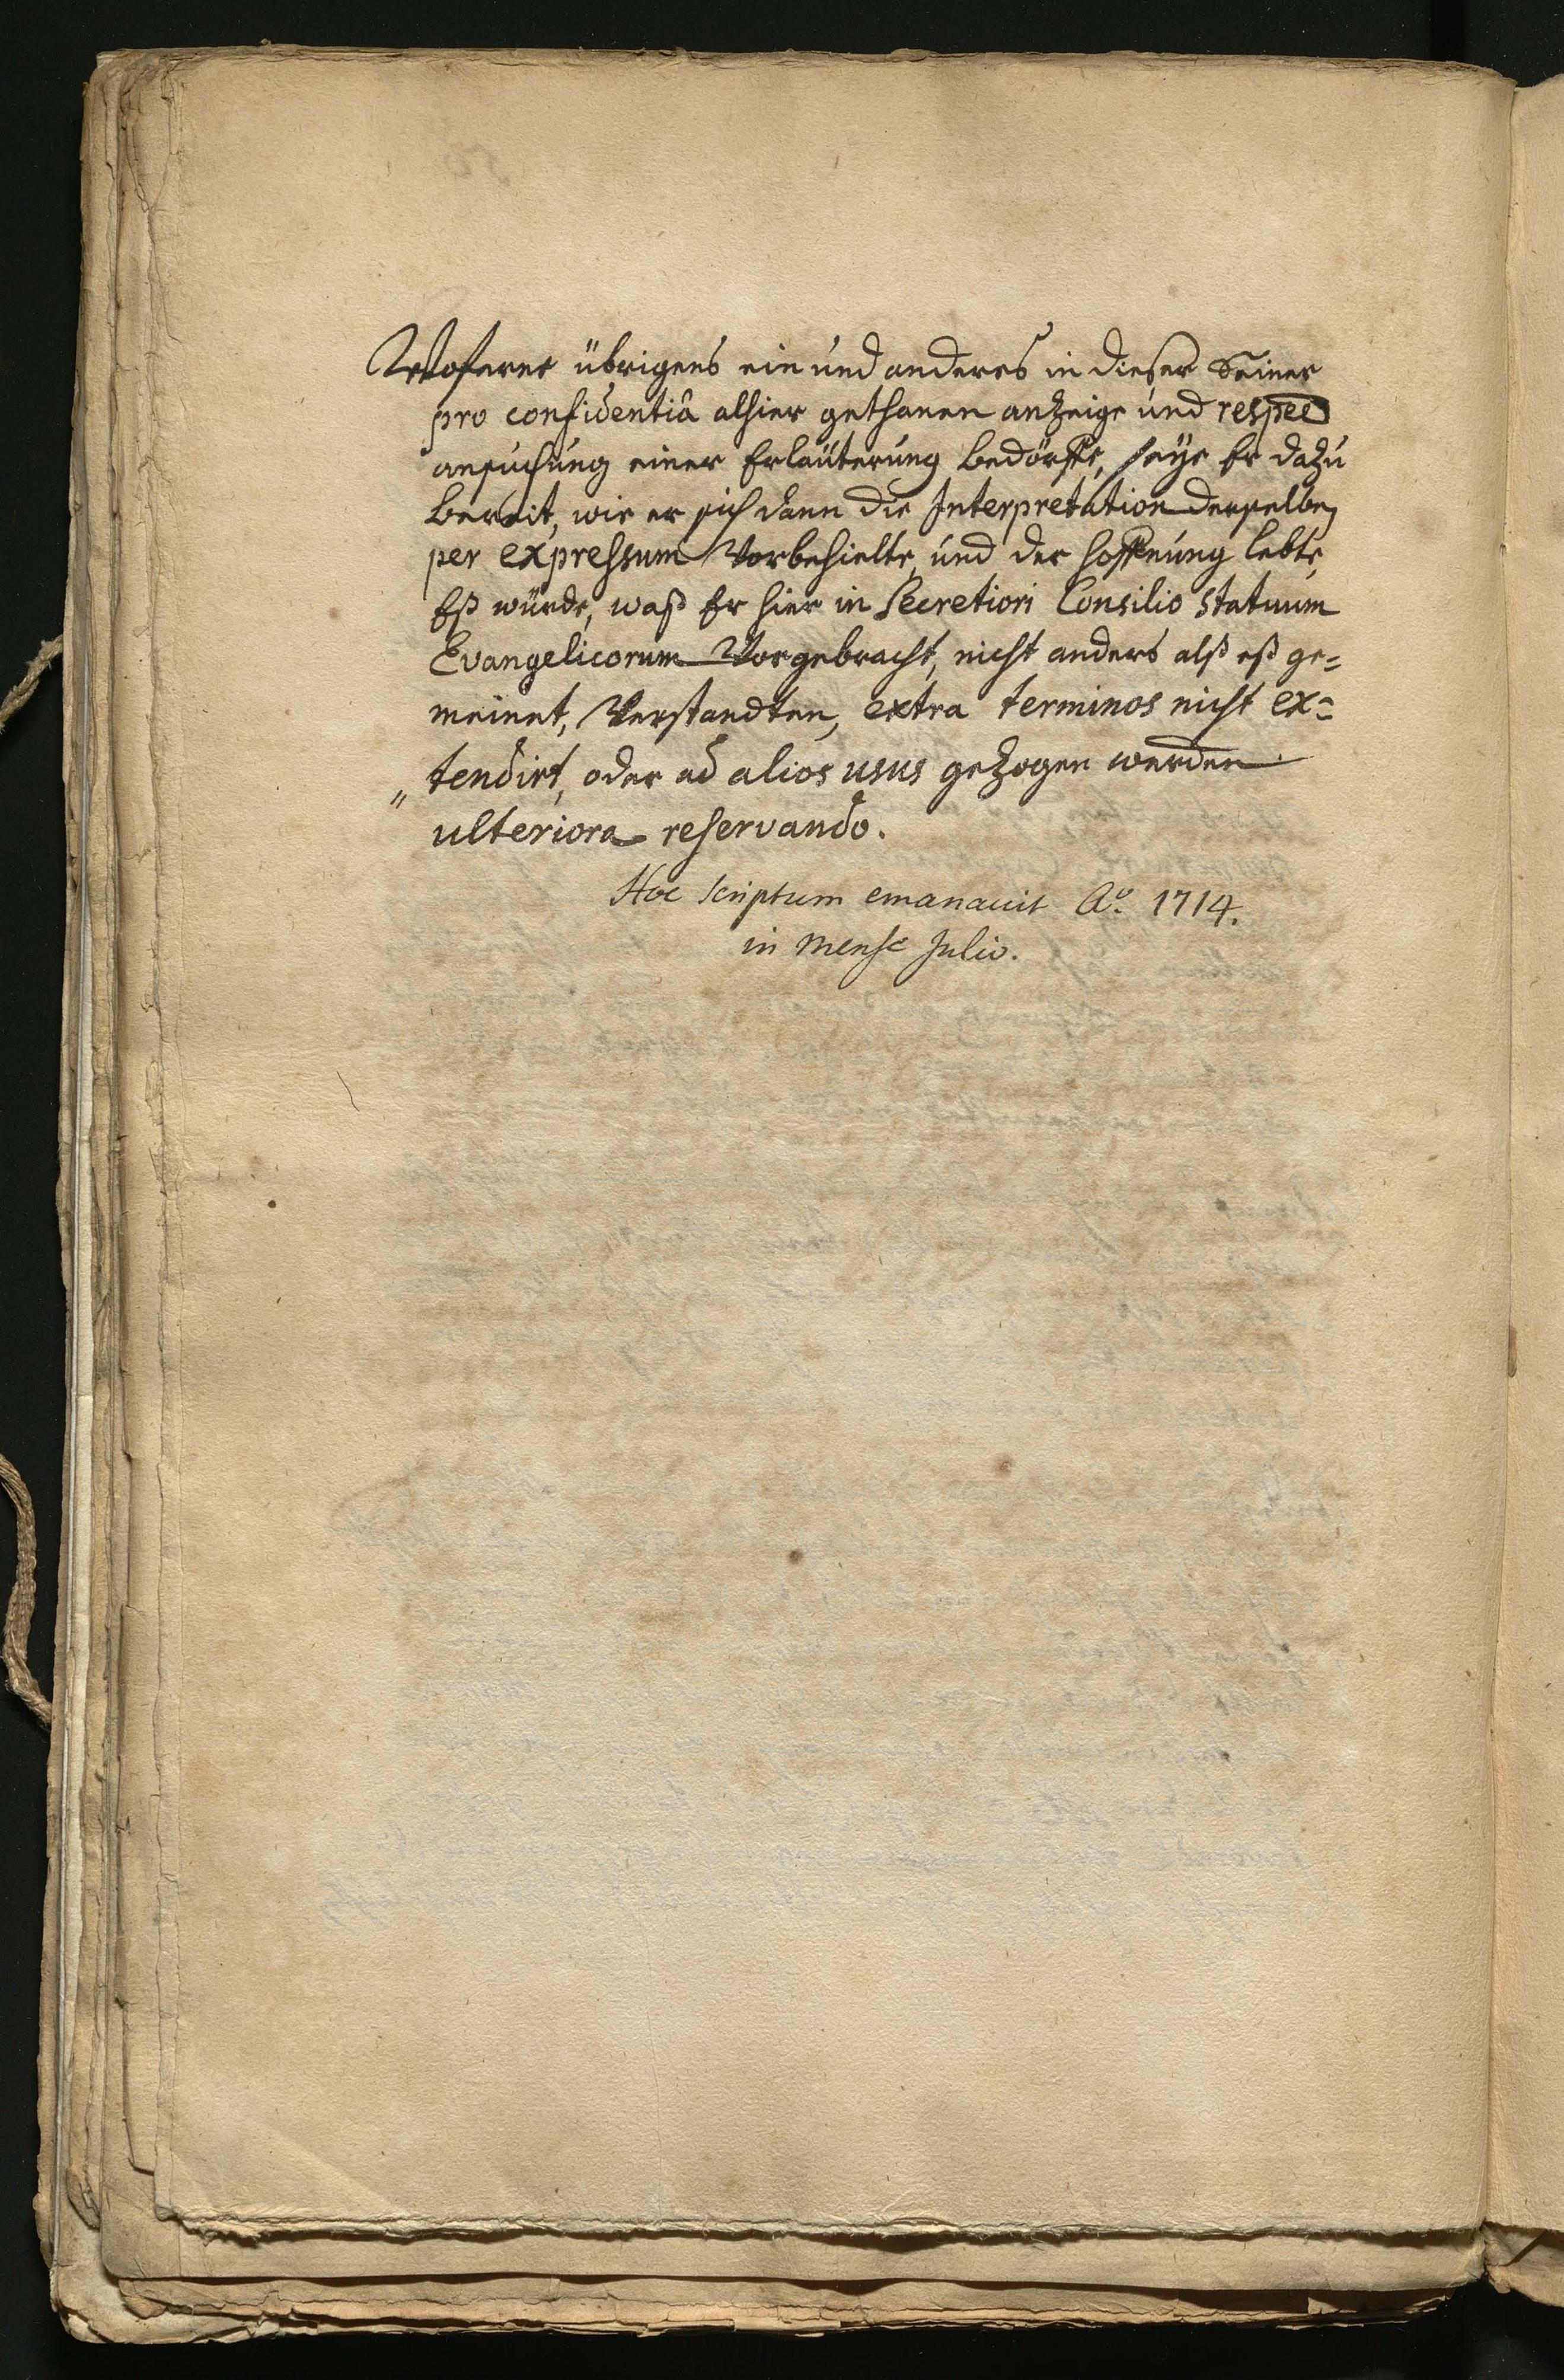 Woferne übrigens ein und anderes in dieser Seiner
pro confidentiâ alhier gethanen anzeige und respee
ansuchung einer Erläuterung bedörffe, seye Er dazu
bereit, wie er sich dann die Interpretation derselben
per expressum Vorbehielte, und der hoffnung lebte,
Eß würde, waß Er hier in Secretiori Consilio Statuum
Evangelicorum Vorgebracht, nicht anders alß eß ge=
meinet, Verstandten, extra terminos nicht ex=
„ tendirt, oder ad alios usus gezogen werden
ulteriora reservando.
Hoc scriptum emanavit Aõ. 1714.
in mense Julio.